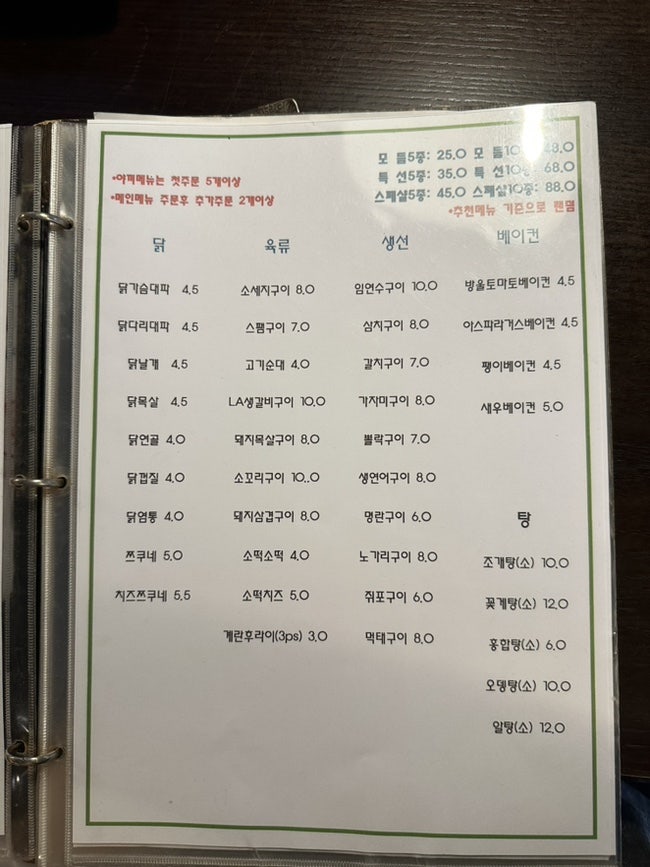 모 듬5종: 25.0 모 듬10종: 48.0
특 선5종: 35.0 특 선10종: 68.0
스페샬5종: 45.0 스페샬10종: 88.0
*추천메뉴 기준으로 랜덤
*야끼메뉴는 첫주문 5개이상
*메인메뉴 주문후 추가주문 2개이상
닭
닭가슴대파 4.5
닭다리대파 4.5
닭날개 4.5
닭목살 4.5
닭연골 4.0
닭껍질 4.0
닭염통 4.0
쯔쿠네 5.0
치즈쯔쿠네 5.5
육류
소세지구이 8.0
스팸구이 7.0
고기순대 4.0
LA생갈비구이 10.0
돼지목살구이 8.0
소꼬리구이 10..0
돼지삼겹구이 8.0
소떡소떡 4.0
소떡치즈 5.0
계란후라이(3ps) 3.0
생선
임연수구이 10.0
삼치구이 8.0
갈치구이 7.0
가자미구이 8.0
뽈락구이 7.0
생연어구이 8.0
명란구이 6.0
노가리구이 8.0
쥐포구이 6.0
먹태구이 8.0
베이컨
방울토마토베이컨 4.5
아스파라거스베이컨 4.5
팽이베이컨 4.5
새우베이컨 5.0
탕
조개탕(소) 10.0
꽃게탕(소) 12.0
홍합탕(소) 6.0
오뎅탕(소) 10.0
알탕(소) 12.0